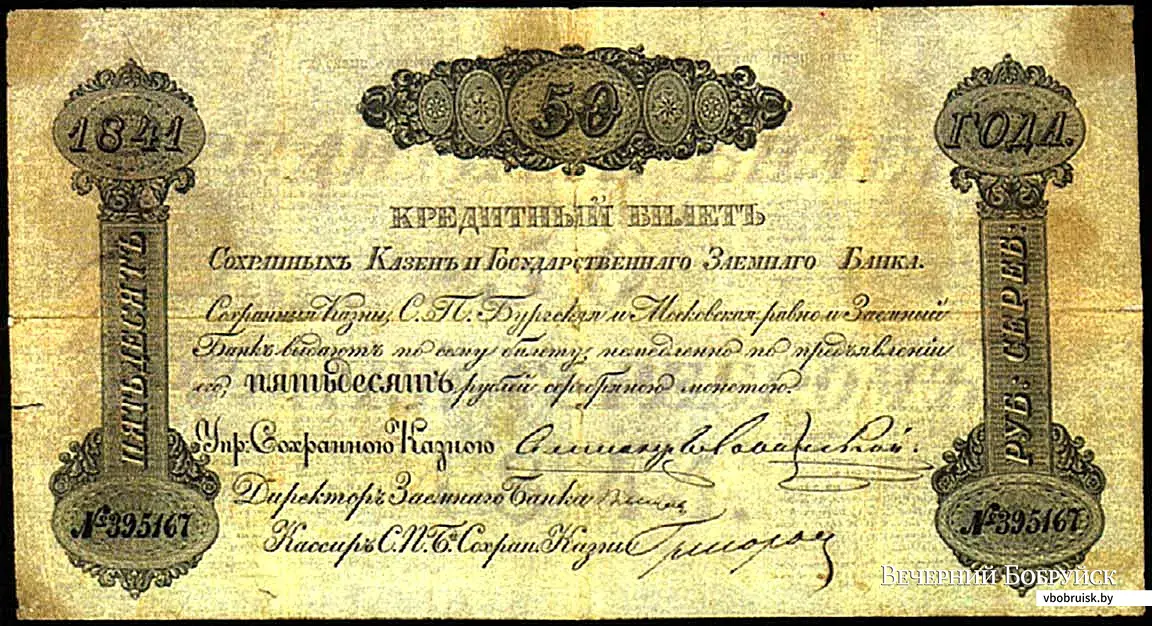 1841
50
ГОДА.
КРЕДИТНЫЙ БИЛЕТЪ
Сохранныхъ Казенъ и Государственнаго Заемнаго Банка.
Сохранныя Казны, С. П. Бургская и Московская равно и Заемный
Банкъ выдаютъ по сему билету, немедленно по предъявленіи
его, пятьдесятъ рублей серебряною монетою.
ПЯТЬДЕСЯТЪ
РУБ: СЕРЕБ:
Упр: Сохранною Казною
Директоръ Заемнаго Банка
Кассиръ С. П. Б. Сохран. Казны
№395167
№395167
ВЕЧЕРНИЙ БОБРУЙСК
vbobruisk.by